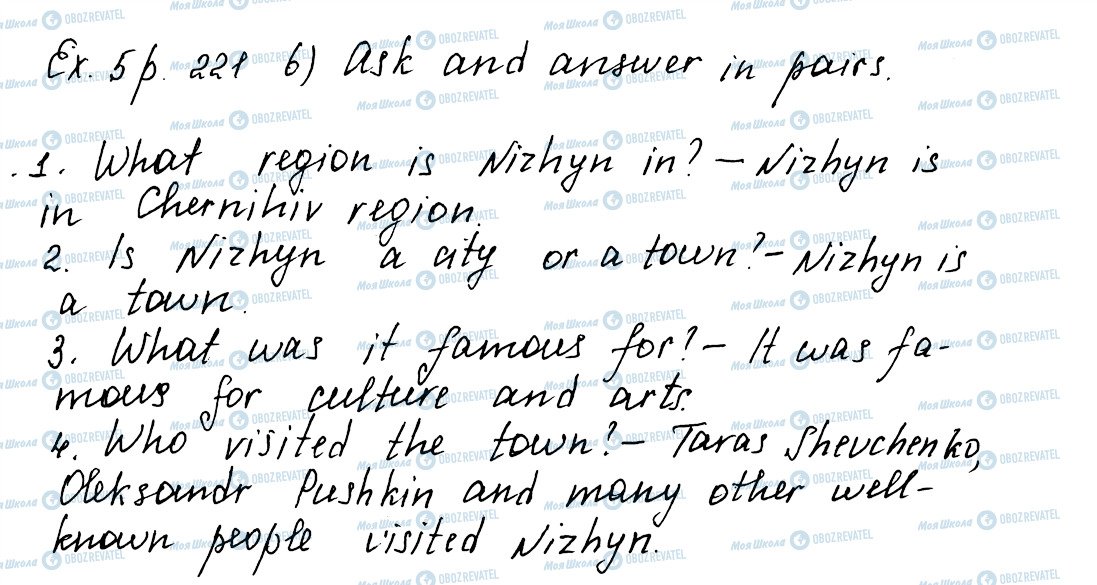 Ex. 5 p. 221 б) Ask and answer in pairs.
1. What region is Nizhyn in? – Nizhyn is
in Chernihiv region.
2. Is Nizhyn a city or a town? – Nizhyn is
a town.
3. What was it famous for? – It was fa-
mous for culture and arts.
4. Who visited the town? – Taras Shevchenko,
Oleksandr Pushkin and many other well-
known people visited Nizhyn.
Моя Школа OBOZREVATEL